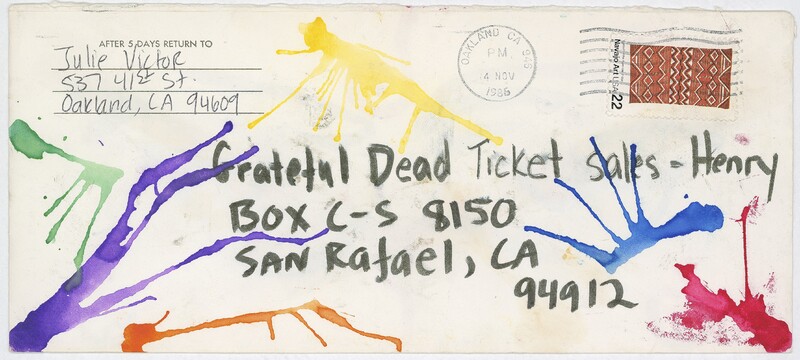 AFTER 5 DAYS RETURN TO
Julie Victor
537 41st St.
Oakland, CA 94609
OAKLAND CA 946
PM
14 NOV
1986
Navajo Art USA 22
Grateful Dead Ticket Sales - Henry
BOX C-S 8150
SAN Rafael, CA
94912